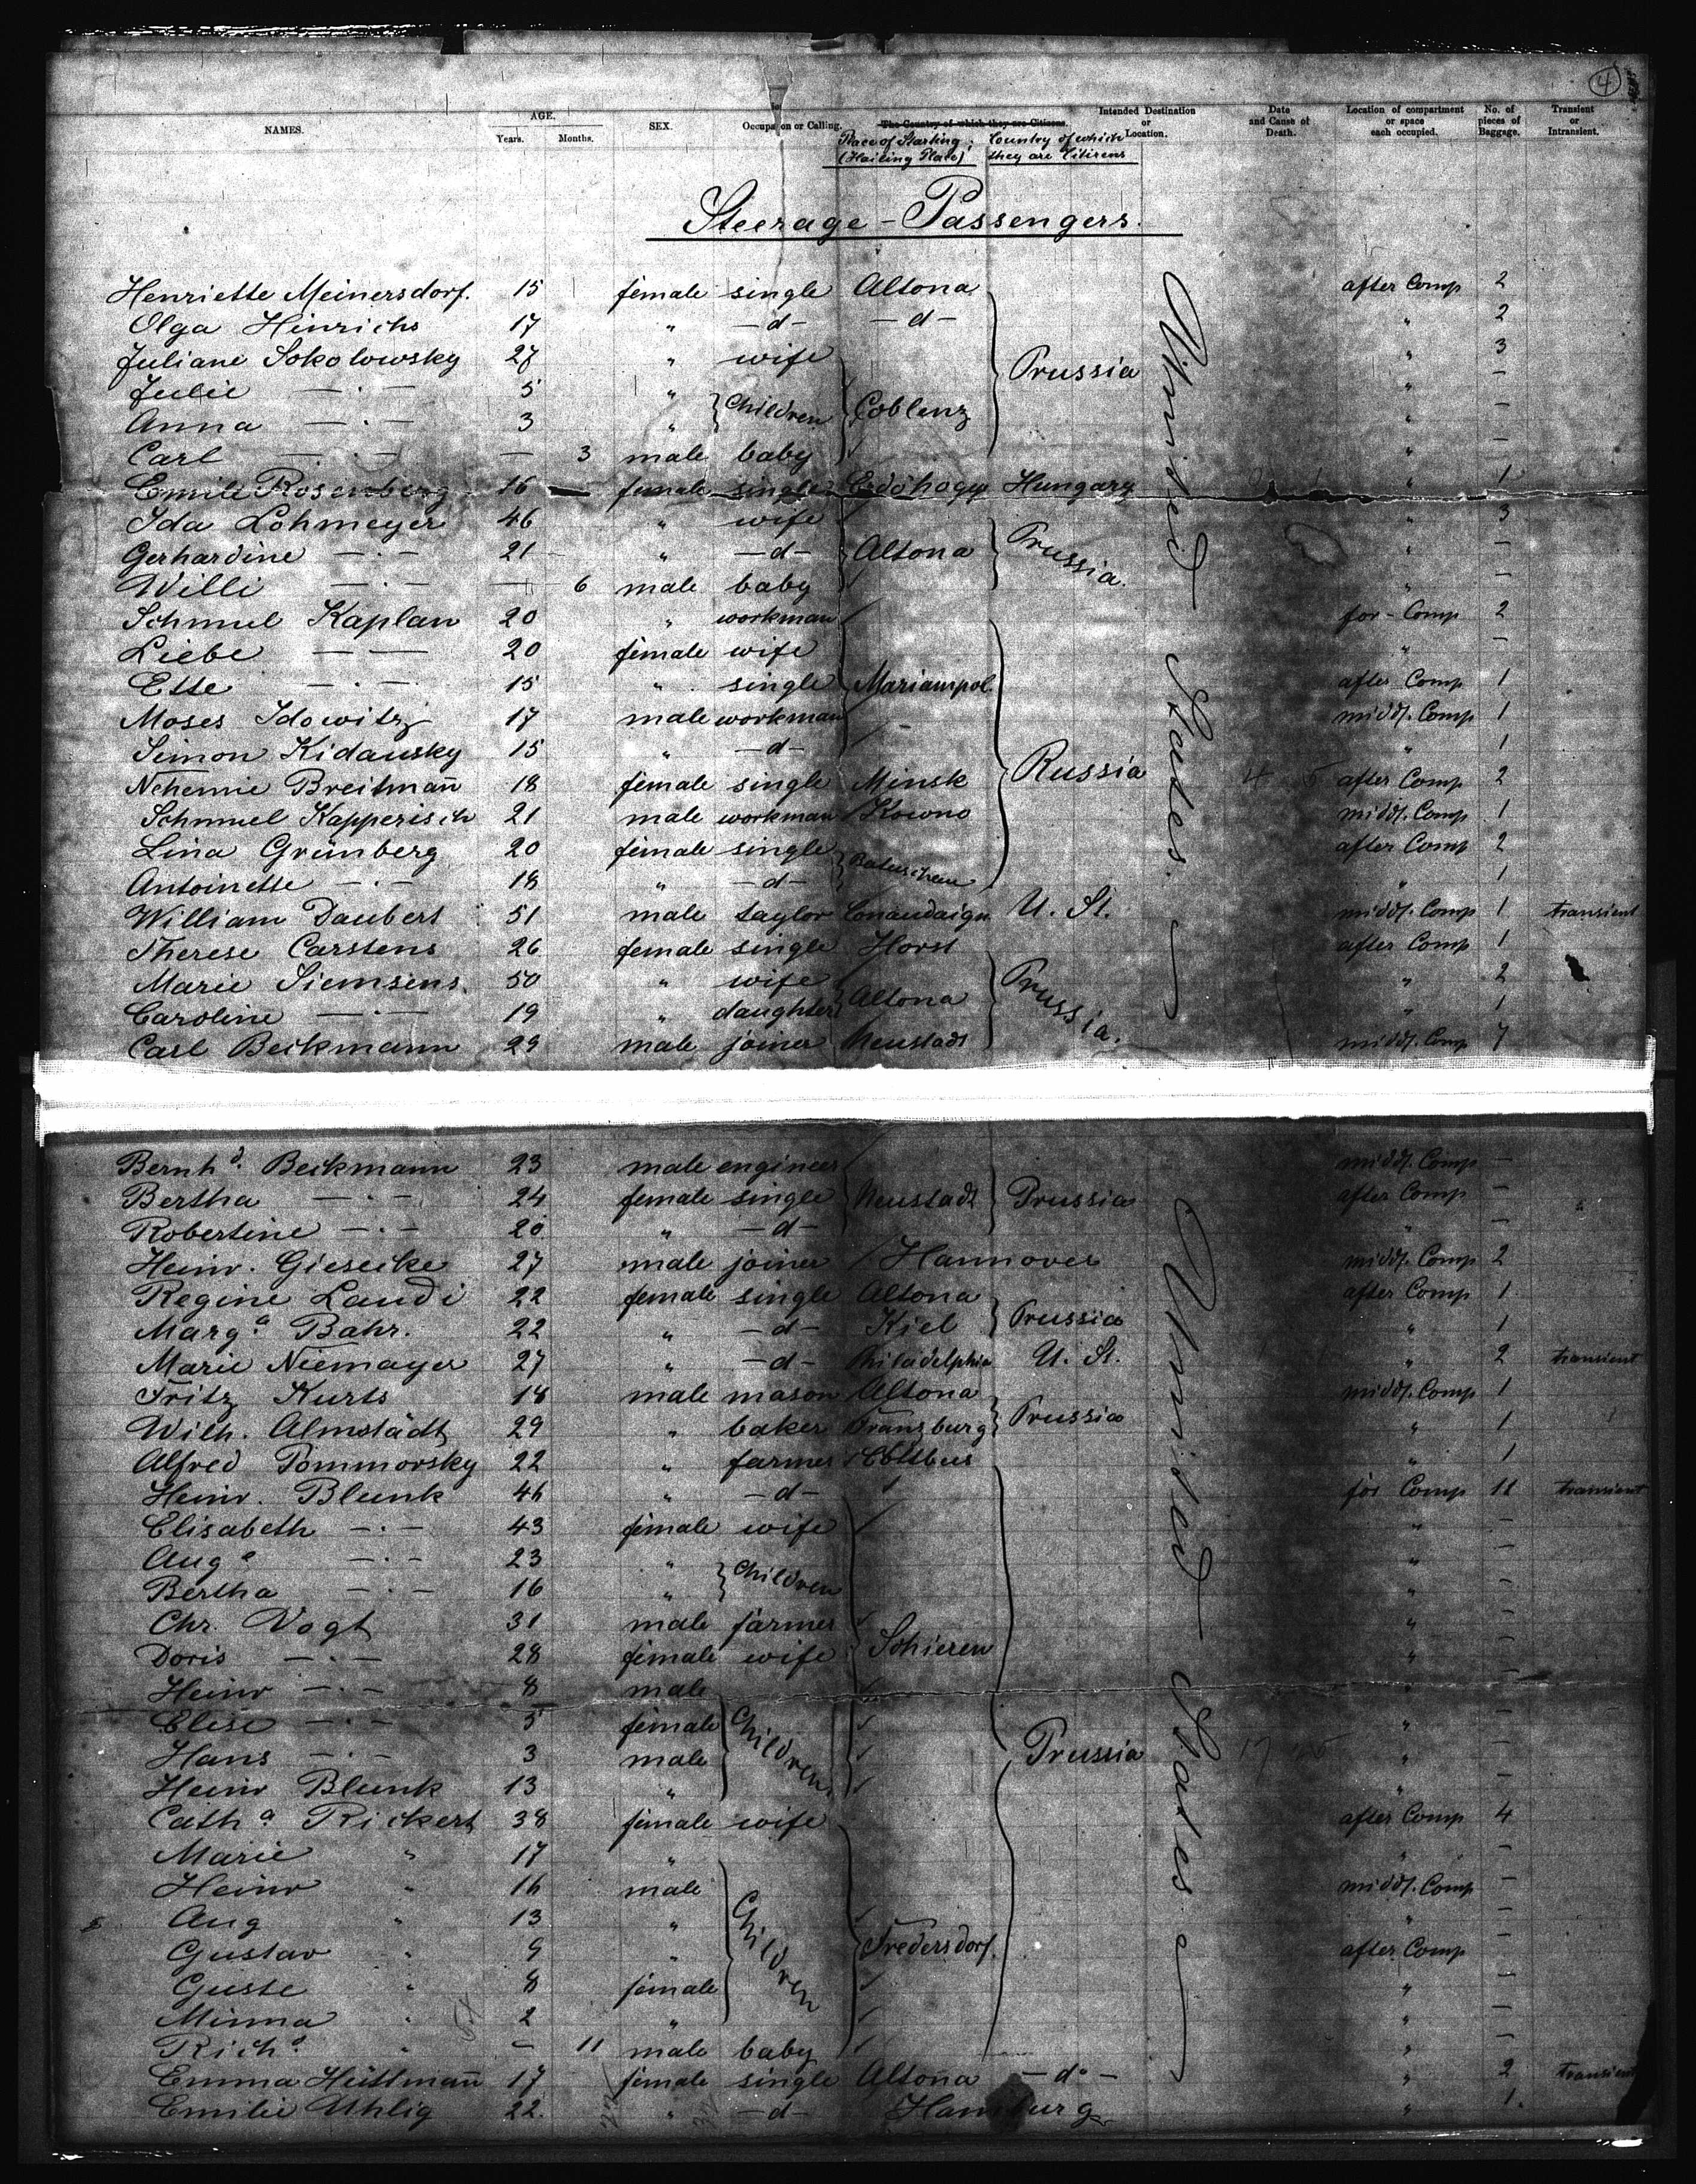 4
NAMES. AGE. Years. Months. SEX. Occupation or Calling. The Country of which they are Citizens. Intended Destination or Location. Date and Cause of Death. Location of compartment or space each occupied. No. of pieces of Baggage. Transient or Intransient.
Place of Starting; (Hailing Place) Country of which they are Citizens
Steerage-Passengers.
Henriette Meinersdorf. 15 female single Altona after Comp 2
Olga Hinrichs 17 " -d- -d- " 2
Juliane Sokolowsky 27 " wife " 3
Prussia
Julie -·- 5 " " -
Children Coblenz
Anna -·- 3 " " -
Carl -·- - 3 male baby " -
Emile Rosenberg 16 - female single Hungary " 1
Ida Lohmeyer 46 " wife " 3
Gerhardine -·- 21 " -d- Altona Prussia. " -
Willi -·- - 6 male baby " -
United States.
Schmul Kaplan 20 " workman for-Comp 2
Liebe -·- 20 female wife " -
Ette -·- 15 " single Mariampol. after Comp 1
Moses Idowitz 17 male workman middl. Comp 1
Simon Kidausky 15 " -d- " 1
Nehemie Breitmañ 18 female single Minsk Russia after Comp 2
Schmuel Kapperisch 21 male workman Kowno middl. Comp 1
Lina Grünberg 20 female single after Comp 2
Antoinette -·- 18 " -d- " 1
William Daubert 51 male taylor Conandaigu U. St. middl. Comp 1 transient
Therese Carstens 26 female single Horst after Comp 1
Marie Siemsens. 50 " wife " 2
Altona Prussia.
Caroline -·- 19 " daughter " 1
Carl Beckmann 29 male joiner Neustadt middl. Comp 7
Bernhd. Beckmann 23 male engineer middl. Comp -
Bertha -·- 24 female single Neustadt Prussia after Comp -
Robertine -·- 20 " -d- " -
Heinr. Giesecke 27 male joiner Hannover middl. Comp 2
Regine Landi 22 female single Altona after Comp 1
Marga. Bahr. 22 " -d- Kiel Prussia " 1
Marie Niemayer 27 " -d- Philadelphia U. St. " 2 transient
Fritz Kurts 18 male mason Altona middl. Comp 1
Wilh. Almstädt 29 " baker Franzburg Prussia " 1
Alfred Pommorsky 22 " farmer Cottbus " 1
Heinr. Blunk 46 " -d- for Comp 11 transient
Elisabeth -·- 43 female wife " -
Auge -·- 23 " " -
Children
Bertha -·- 16 " " -
Chr. Vogt 31 male farmer " -
Doris -·- 28 female wife Schieren " -
Heinr -·- 8 male " -
Elise -·- 5 female Children. " -
Hans -·- 3 male Prussia " -
United States
Heinr Blunk 13 " " -
Catha Rickert 38 female wife after Comp 4
Marie " 17 " " -
Heinr " 16 male middl. Comp -
Aug " 13 " Children " -
Gustav " 9 " Fredersdorf. after Comp -
Guste " 8 female " -
Minna " 2 " " -
Richd. " - 11 male baby " -
Emma Hüttmañ 17 female single Altona -do- " 2 transient
Emilie Uhlig 22. " -d- Hamburg " 1.